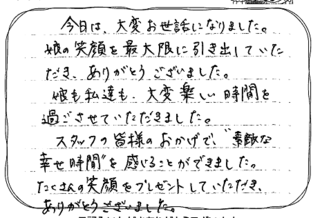 今日は、大変お世話になりました。
娘の笑顔を最大限に引き出していた
だき、ありがとうございました。
娘も私達も、大変楽しい時間を
過ごさせていただきました。
スタッフの皆様のおかげで、“素敵な
幸せ時間”を感じることができました。
たくさんの笑顔をプレゼントしていただき、
ありがとうございました。